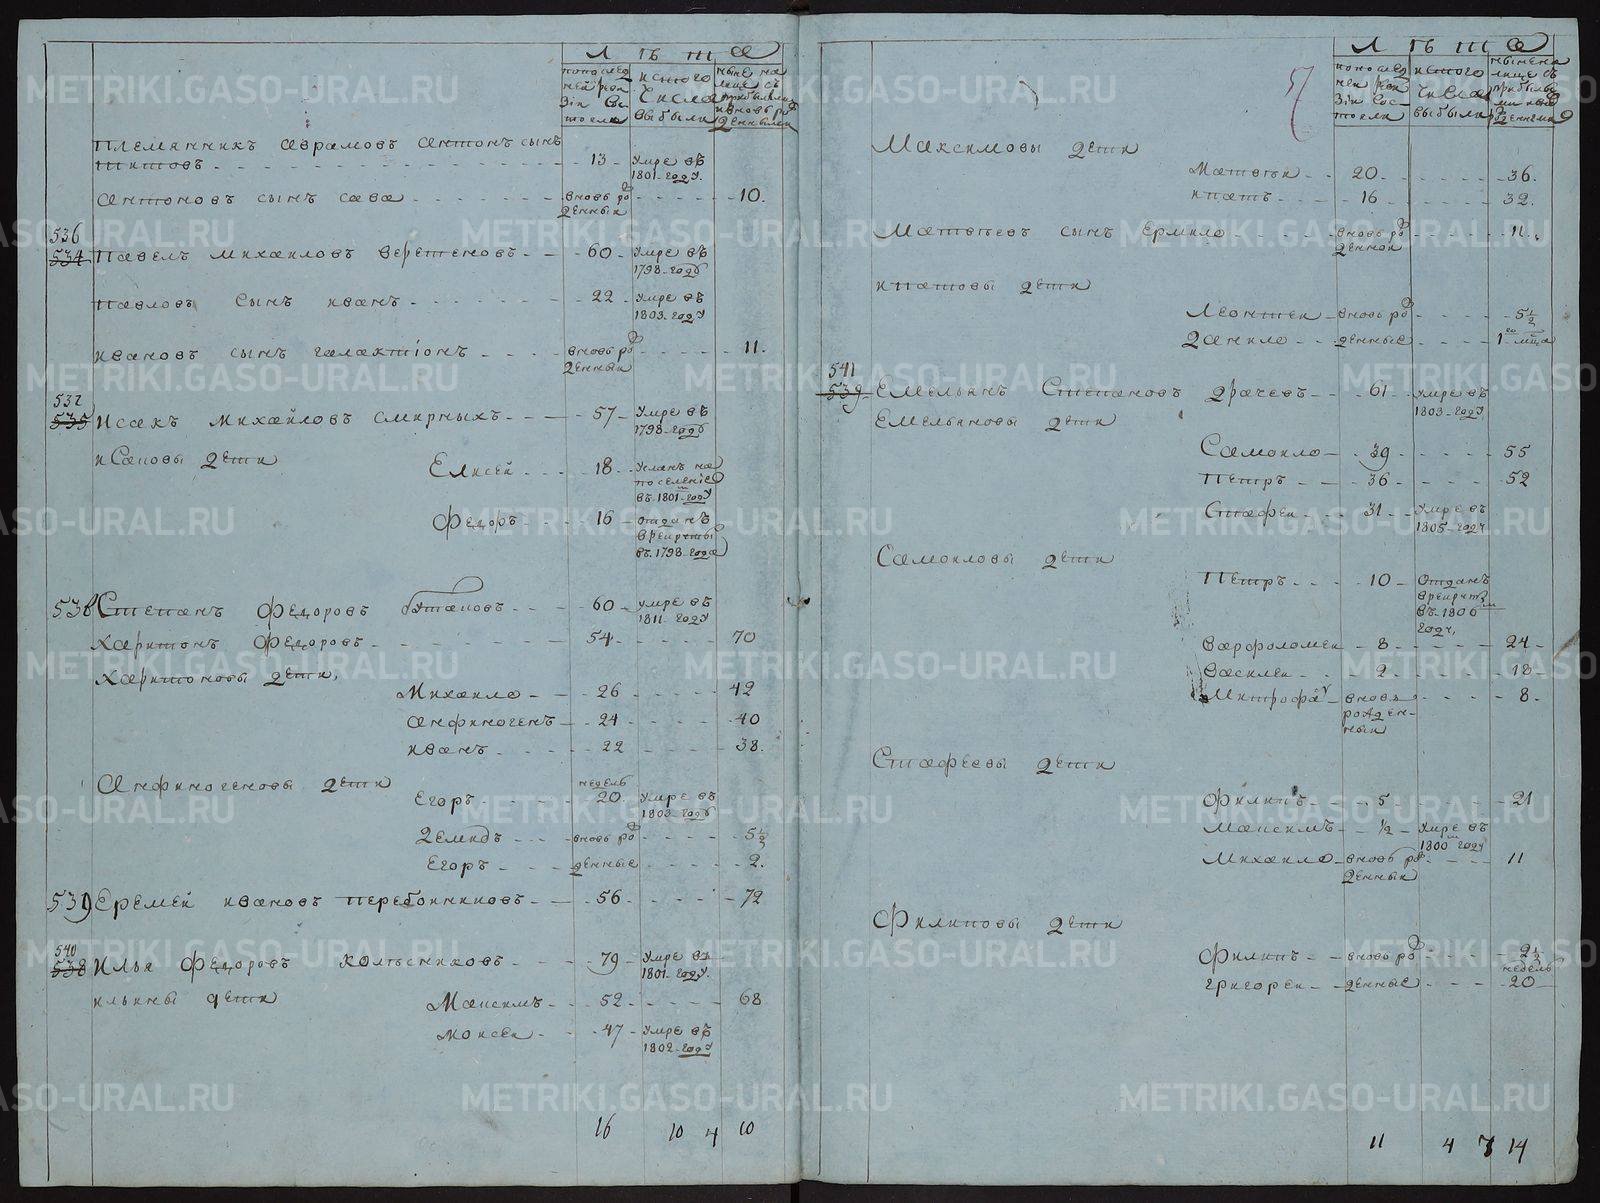 Л ѣ т а
попослед
ней реви
зіи сос-
тоело
истого
числа
выбыли
ныне на
лице съ
прибылыми
и вновь ро
жденными
племянникъ аврамовъ антонъ сынъ
титовъ - - - 13 - умре въ
1801 - году.
антоновъ сынъ сава - - - вновь ро
жденныи - - - 10.
536
534 Павелъ михаиловъ веретеновъ - - - 60 - умре въ
1798 - году
павловъ сынъ иванъ - - - 22 - умре въ
1803 - году
ивановъ сынъ галактіонъ - - - вновь ро
жденныи - - - 11.
537
535 Исакъ михайловъ смирныхъ - - - 57 - умре въ
1798 - году
исаковы дети
Елисей - - - 18 - усланъ на
поселеніе
въ 1801 - году
Федоръ - - - 16 - отданъ
врекруты
въ 1798 - годе
538 Степанъ Федоровъ бутаковъ - - - 60 - умре въ
1811 - году
харитонъ Федоровъ - - - 54 - - - 70
харитоновы дети,
Михаило - - - 26 - - - 42
анфиногенъ - 24 - - - 40
иванъ - - - 22 - - - 38.
анфиногеновы дети
Егоръ - - - недель
20 - умре въ
1803 - году
Демидъ - - - вновь ро - - - 5 1/2
Егоръ - - - жденные - - - 2.
539 Еремей ивановъ перебоиниковъ - - - 56 - - - 72
540
538 Илья Федоровъ колѣсниковъ - - - 79 - умре въ
1801 - году.
ильины дети
Максимъ - - - 52 - - - 68
Моисеи - - - 47 - умре въ
1802 - году
16 10 4 10
57
Л ѣ т а
попослед
ней реви
зіи сос-
тоели
истого
числа
выбыли
ныне на
лице съ
прибылы
ми и вно
рожденнеми
Максимовы дети
Матвѣи - 20 - - - 36.
ипатъ - - - 16 - - - 32.
Матвѣевъ сынъ Ермило - - - вновь ро
жденнои - - - 11.
ипатовы дети
Леонтеи - вновь ро - - - 5 1/2
Данило - - жденные - - - 1го мца
541
539 Емельянъ Степановъ драчевъ - - 61 - умре въ
1803 - году
Емельяновы дети
Самоило - 39 - - - 55
Петръ - - 36 - - - 52
Стафеи - - 31 - умре въ
1805 - году
Самоиловы дети
Петръ - - - 10 - Отданъ
врекрут
въ 1806 м
году,
варфоломеи - 8 - - - 24 -
василеи - - 2 - - - 18
Митрофа - вновь
рожден-
ныи - - - 8 -
Стафеевы дети
Филипъ - - 5 - - - 21
Максимъ - - 1/2 - умре въ
1800 году
Михаило - вновь ро
жденныи - - - 11
Филиповы дети
Филипъ - - вновь ро - - - 2 1/2
григореи - - жденные - - - недель
20
11 4 7 14
METRIKI.GASO-URAL.RU